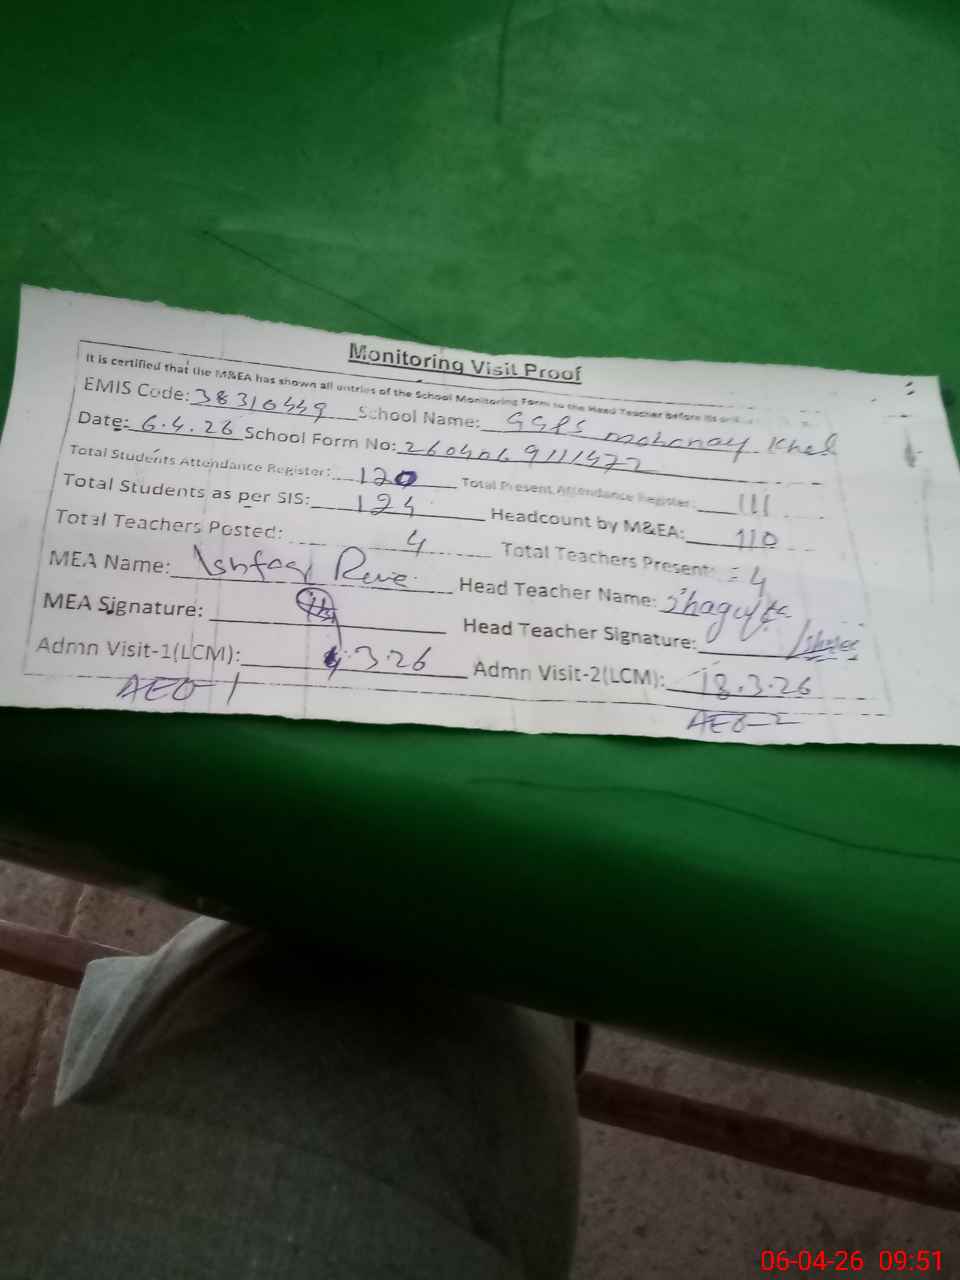 Monitoring Visit Proof
It is certified that the M&EA has shown all entries of the School Monitoring Form to the Head Teacher before its
EMIS Code: 38310449 School Name: GGPS mohanay Khel
Date: 6.4.26 School Form No: 2604069111472
Total Students Attendance Register: 120 Total Present Attendance Register: 111
Total Students as per SIS: 124 Headcount by M&EA: 110
Total Teachers Posted: 4 Total Teachers Present: = 4
MEA Name: Ishfaq Head Teacher Name: Shagufta
MEA Signature: Head Teacher Signature:
Admn Visit-1(LCM): 4.3.26 Admn Visit-2(LCM): 18.3.26
AEO-1 AEO-2
06-04-26 09:51